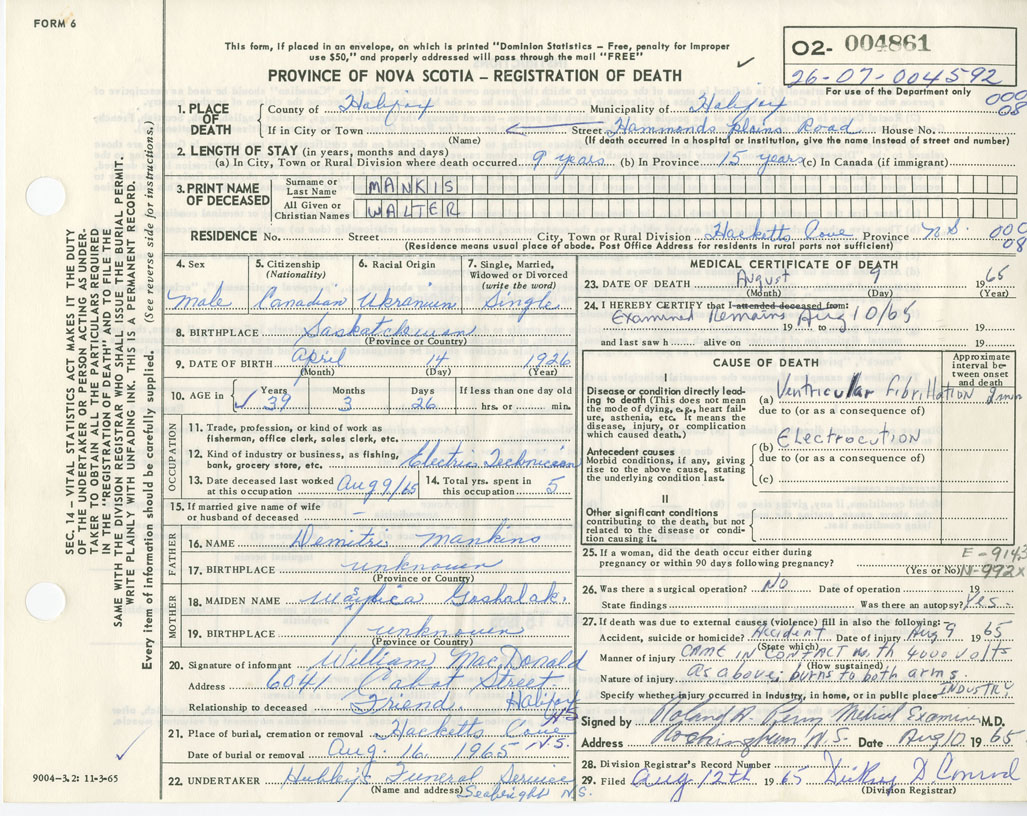 FORM 6
This form, if placed in an envelope, on which is printed "Dominion Statistics – Free, penalty for improper
use $50," and properly addressed will pass through the mail "FREE"
PROVINCE OF NOVA SCOTIA – REGISTRATION OF DEATH
02- 004861
26-07-004592
For use of the Department only
000
08
SEC. 14 – VITAL STATISTICS ACT MAKES IT THE DUTY
OF THE UNDERTAKER OR PERSON ACTING AS UNDER-
TAKER TO OBTAIN ALL THE PARTICULARS REQUIRED
IN THE "REGISTRATION OF DEATH" AND TO FILE THE
SAME WITH THE DIVISION REGISTRAR WHO SHALL ISSUE THE BURIAL PERMIT.
WRITE PLAINLY WITH UNFADING INK. THIS IS A PERMANENT RECORD.
Every item of information should be carefully supplied. (See reverse side for instructions.)
1. PLACE OF DEATH
County of Halifax Municipality of Halifax
If in City or Town (Name) Street Hammonds plains Road House No.
(If death occurred in a hospital or institution, give the name instead of street and number)
2. LENGTH OF STAY (in years, months and days)
(a) In City, Town or Rural Division where death occurred 9 years (b) In Province 15 years (c) In Canada (if immigrant)
3. PRINT NAME OF DECEASED
Surname or Last Name MANKIS
All Given or Christian Names WALTER
RESIDENCE No. Street City, Town or Rural Division Hacketts Cove Province N.S.
(Residence means usual place of abode. Post Office Address for residents in rural parts not sufficient)
4. Sex Male
5. Citizenship (Nationality) Canadian
6. Racial Origin Ukranium
7. Single, Married, Widowed or Divorced (write the word) Single
8. BIRTHPLACE Saskatchewan
(Province or Country)
9. DATE OF BIRTH April 14 1926
(Month) (Day) (Year)
10. AGE in Years 39 Months 3 Days 26 If less than one day old hrs. or min.
OCCUPATION
11. Trade, profession or kind of work as
fisherman, office clerk, sales clerk, etc.
12. Kind of industry or business, as fishing,
bank, grocery store, etc. Electric Technician
13. Date deceased last worked at this occupation Aug 9/65
14. Total yrs. spent in this occupation 5
15. If married give name of wife
or husband of deceased –
FATHER
16. NAME Demitri Mankins
17. BIRTHPLACE unknown
(Province or Country)
MOTHER
18. MAIDEN NAME Goshalak.
19. BIRTHPLACE unknown
(Province or Country)
20. Signature of informant William MacDonald
Address 6041 Cabot Street
Halifax NS
Relationship to deceased Friend.
21. Place of burial, cremation or removal Hacketts Cove N.S.
Date of burial or removal Aug. 16, 1965
22. UNDERTAKER Hubley's Funeral Service
(Name and address) Seabright N.S.
9004-3.2: 11-3-65
MEDICAL CERTIFICATE OF DEATH
23. DATE OF DEATH August 9 1965
(Month) (Day) (Year)
24. I HEREBY CERTIFY that I attended deceased from:
Examined Remains Aug 10/65
19 to 19
and last saw h alive on 19
CAUSE OF DEATH
Approximate interval between onset and death
I
Disease or condition directly lead-
ing to death (This does not mean
the mode of dying, e.g., heart fail-
ure, asthenia, etc. It means the
disease, injury, or complication
which caused death.)
(a) Ventricular fibrillation
due to (or as a consequence of)
Antecedent causes
Morbid conditions, if any, giving
rise to the above cause, stating
the underlying condition last.
(b) Electrocution
due to (or as a consequence of)
(c)
II
Other significant conditions
contributing to the death, but not
related to the disease or condi-
tion causing it.
25. If a woman, did the death occur either during
pregnancy or within 90 days following pregnancy?
(Yes or No)
E-914.3
N-992X
26. Was there a surgical operation? NO Date of operation 19
State findings Was there an autopsy? Yes
27. If death was due to external causes (violence) fill in also the following:
Accident, suicide or homicide? Accident Date of injury Aug 9 1965
(State which)
Manner of injury CAME IN CONTACT with 4000 volts
(How sustained)
Nature of injury As above; burns to both arms.
Specify whether injury occurred in industry, in home, or in public place INDUSTRY
Signed by Roland A. Perry Medical Examiner M.D.
Address Rockingham N.S. Date Aug 10 1965
28. Division Registrar's Record Number
29. Filed Aug 12th 1965 D. Conrod
(Division Registrar)